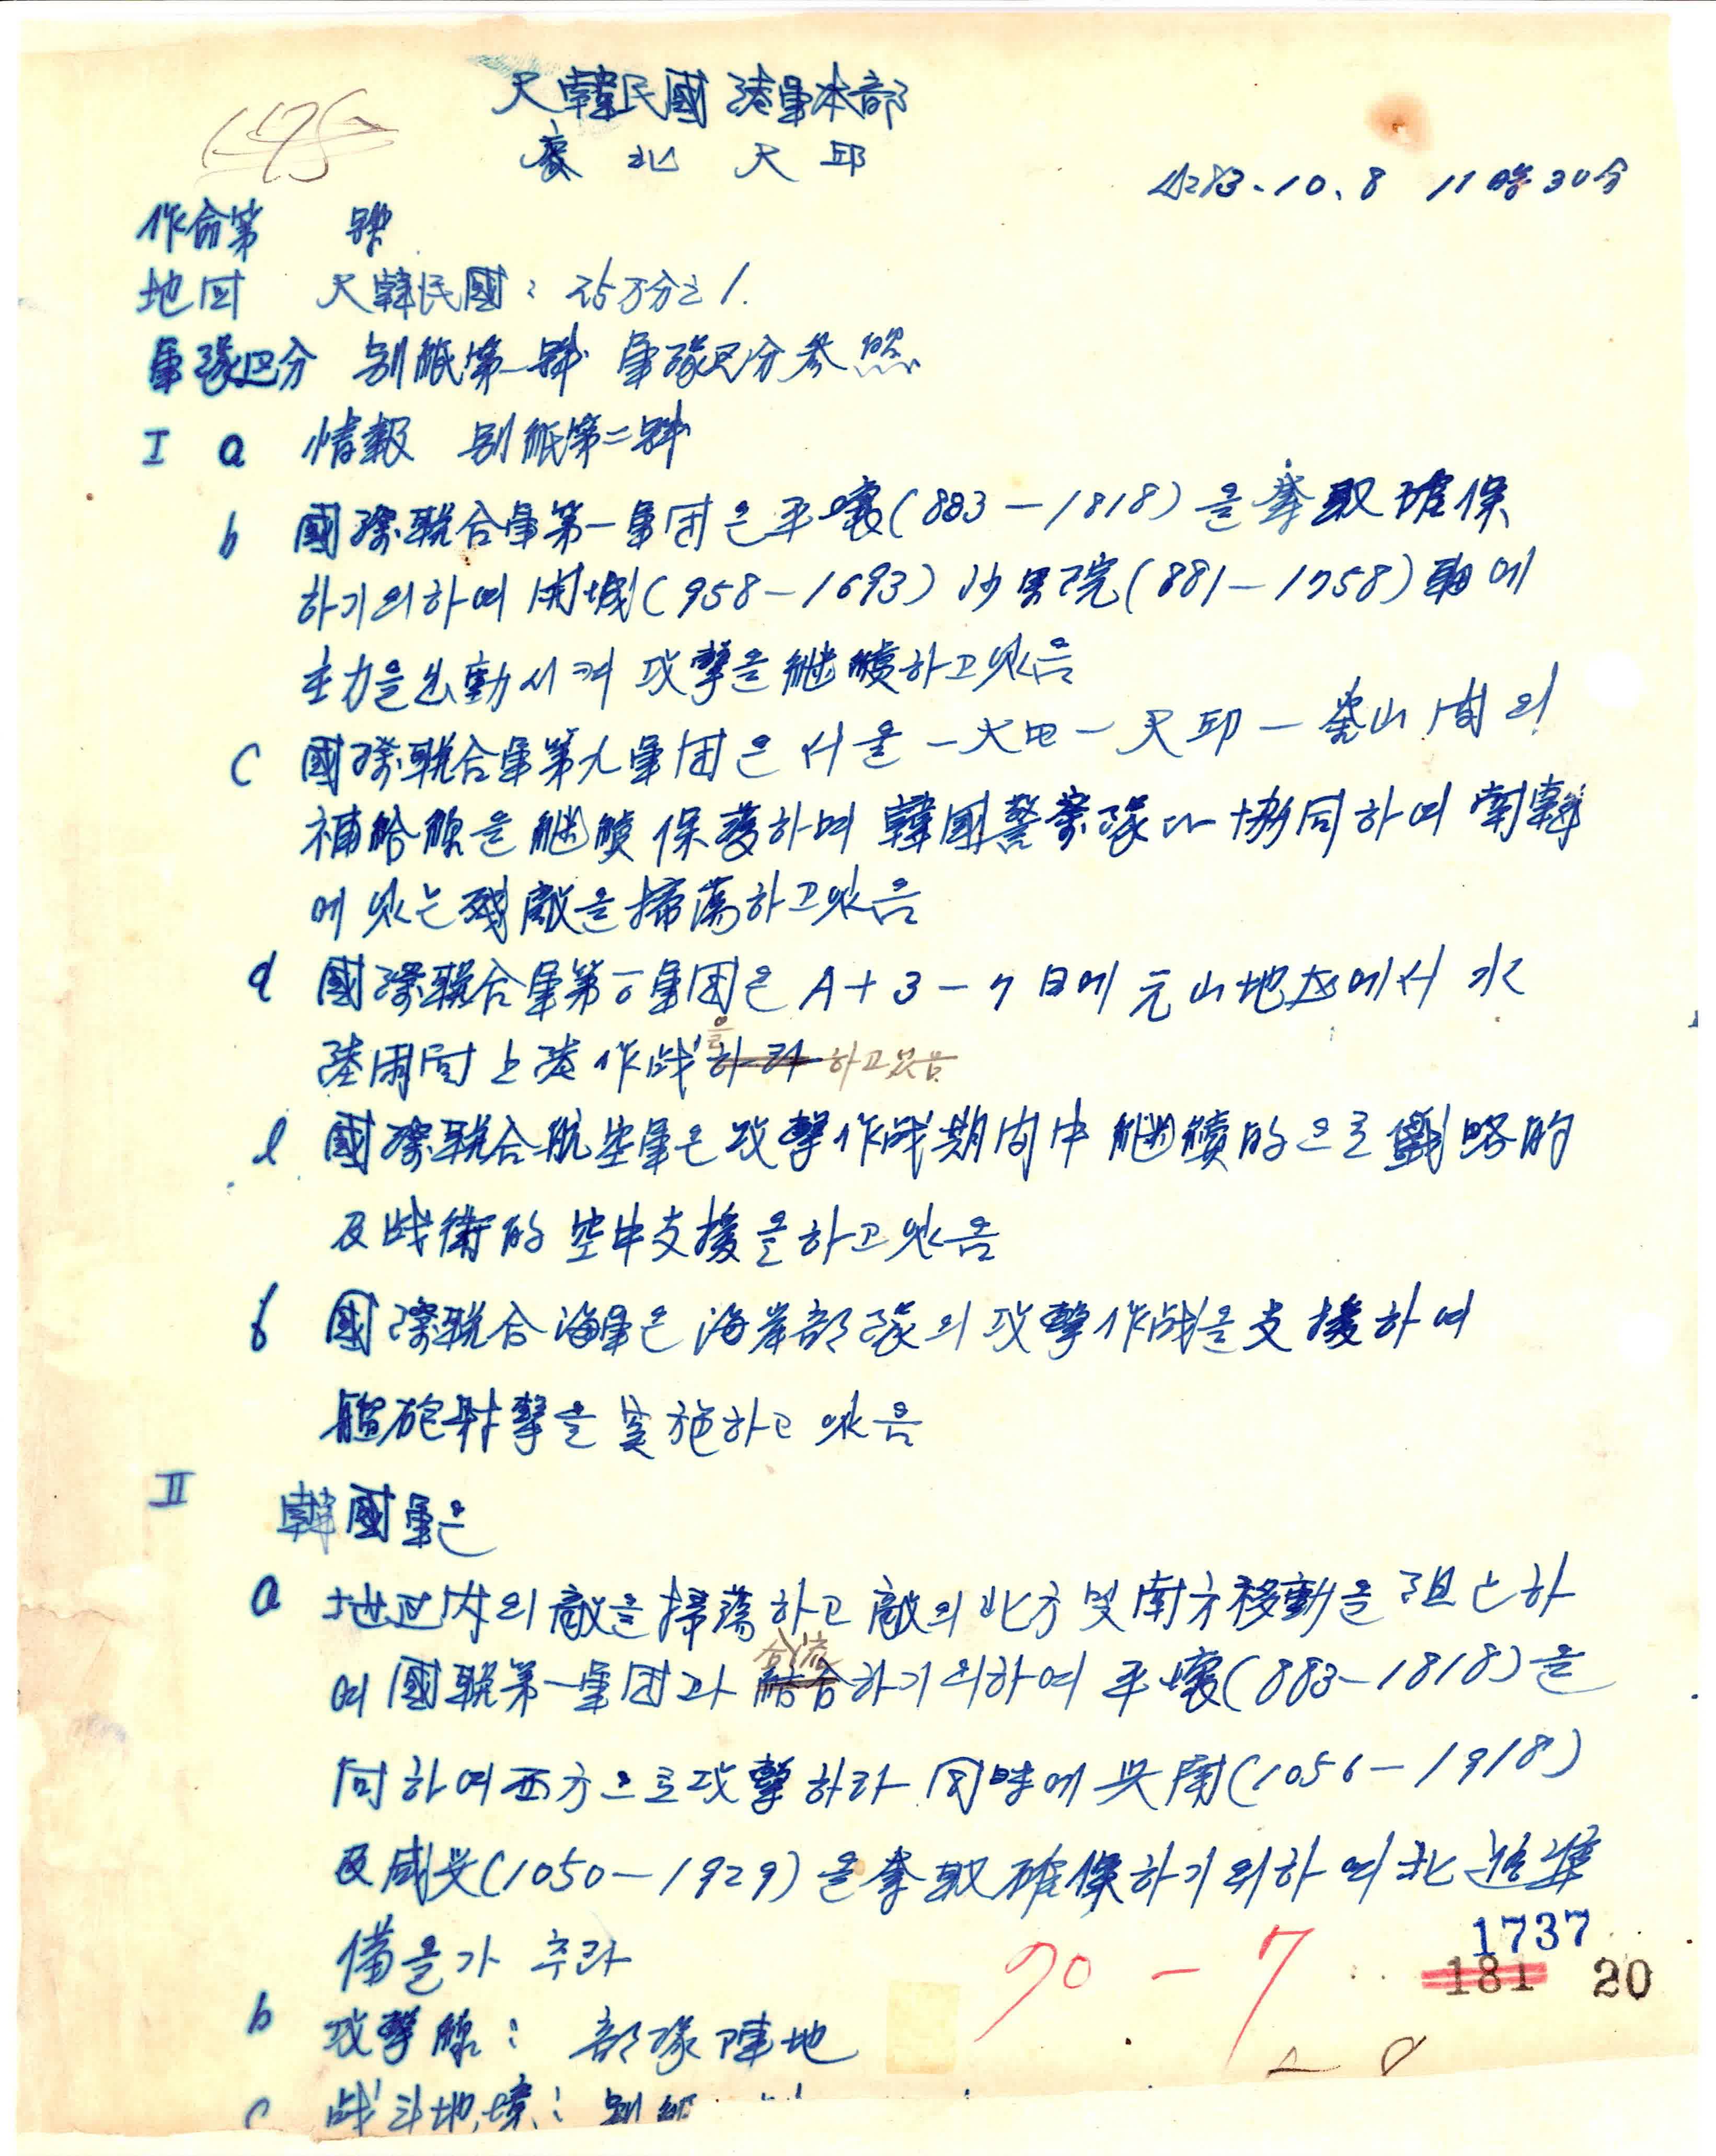 大韓民國 陸軍本部
慶北 大邱
4283.10.8 11時30分
作命第 號
地図 大韓民國: 25万分之1.
軍隊区分 別紙第一號 軍隊区分参照
I a 情報 別紙第二號
b 國際聯合軍第一軍団은 平壤(883-1818)을 奪取確保
하기 위하여 開城(958-1693) 沙里院(881-1758)軸에
主力을 出動시켜 攻擊을 継續하고 있음
C 國際聯合軍第九軍団은 서울-大田-大邱-釜山間의
補給線을 継續 保護하며 韓國警察隊와 協同하여 南韓
에 있는 殘敵을 掃蕩하고 있음
d 國際聯合軍第 軍団은 A+3-7日에 元山地区에서 水
陸両面 上陸作战을 하라 하고있음
e 國際聯合航空軍은 攻擊作战期间中 継續的으로 戰略的
及战術的 空中支援을 하고 있음
f 國際聯合海軍은 海岸部隊의 攻擊作战을 支援하여
艦砲射擊을 实施하고 있음
II 韓國軍은
a 地区内의 敵을 掃蕩하고 敵의 北方 및 南方移動을 阻止하
合流
여 國聯第一軍団과 結合하기 위하여 平壤(883-1818)을
向하여 西方으로 攻擊하라 同時에 兴南(1056-1918)
及咸兴(1050-1929)을 奪取確保하기 위하여 北進準
備을 가추라
90-7
1737
181 20
b 攻擊線: 部隊陣地
c 战斗地境: 別紙